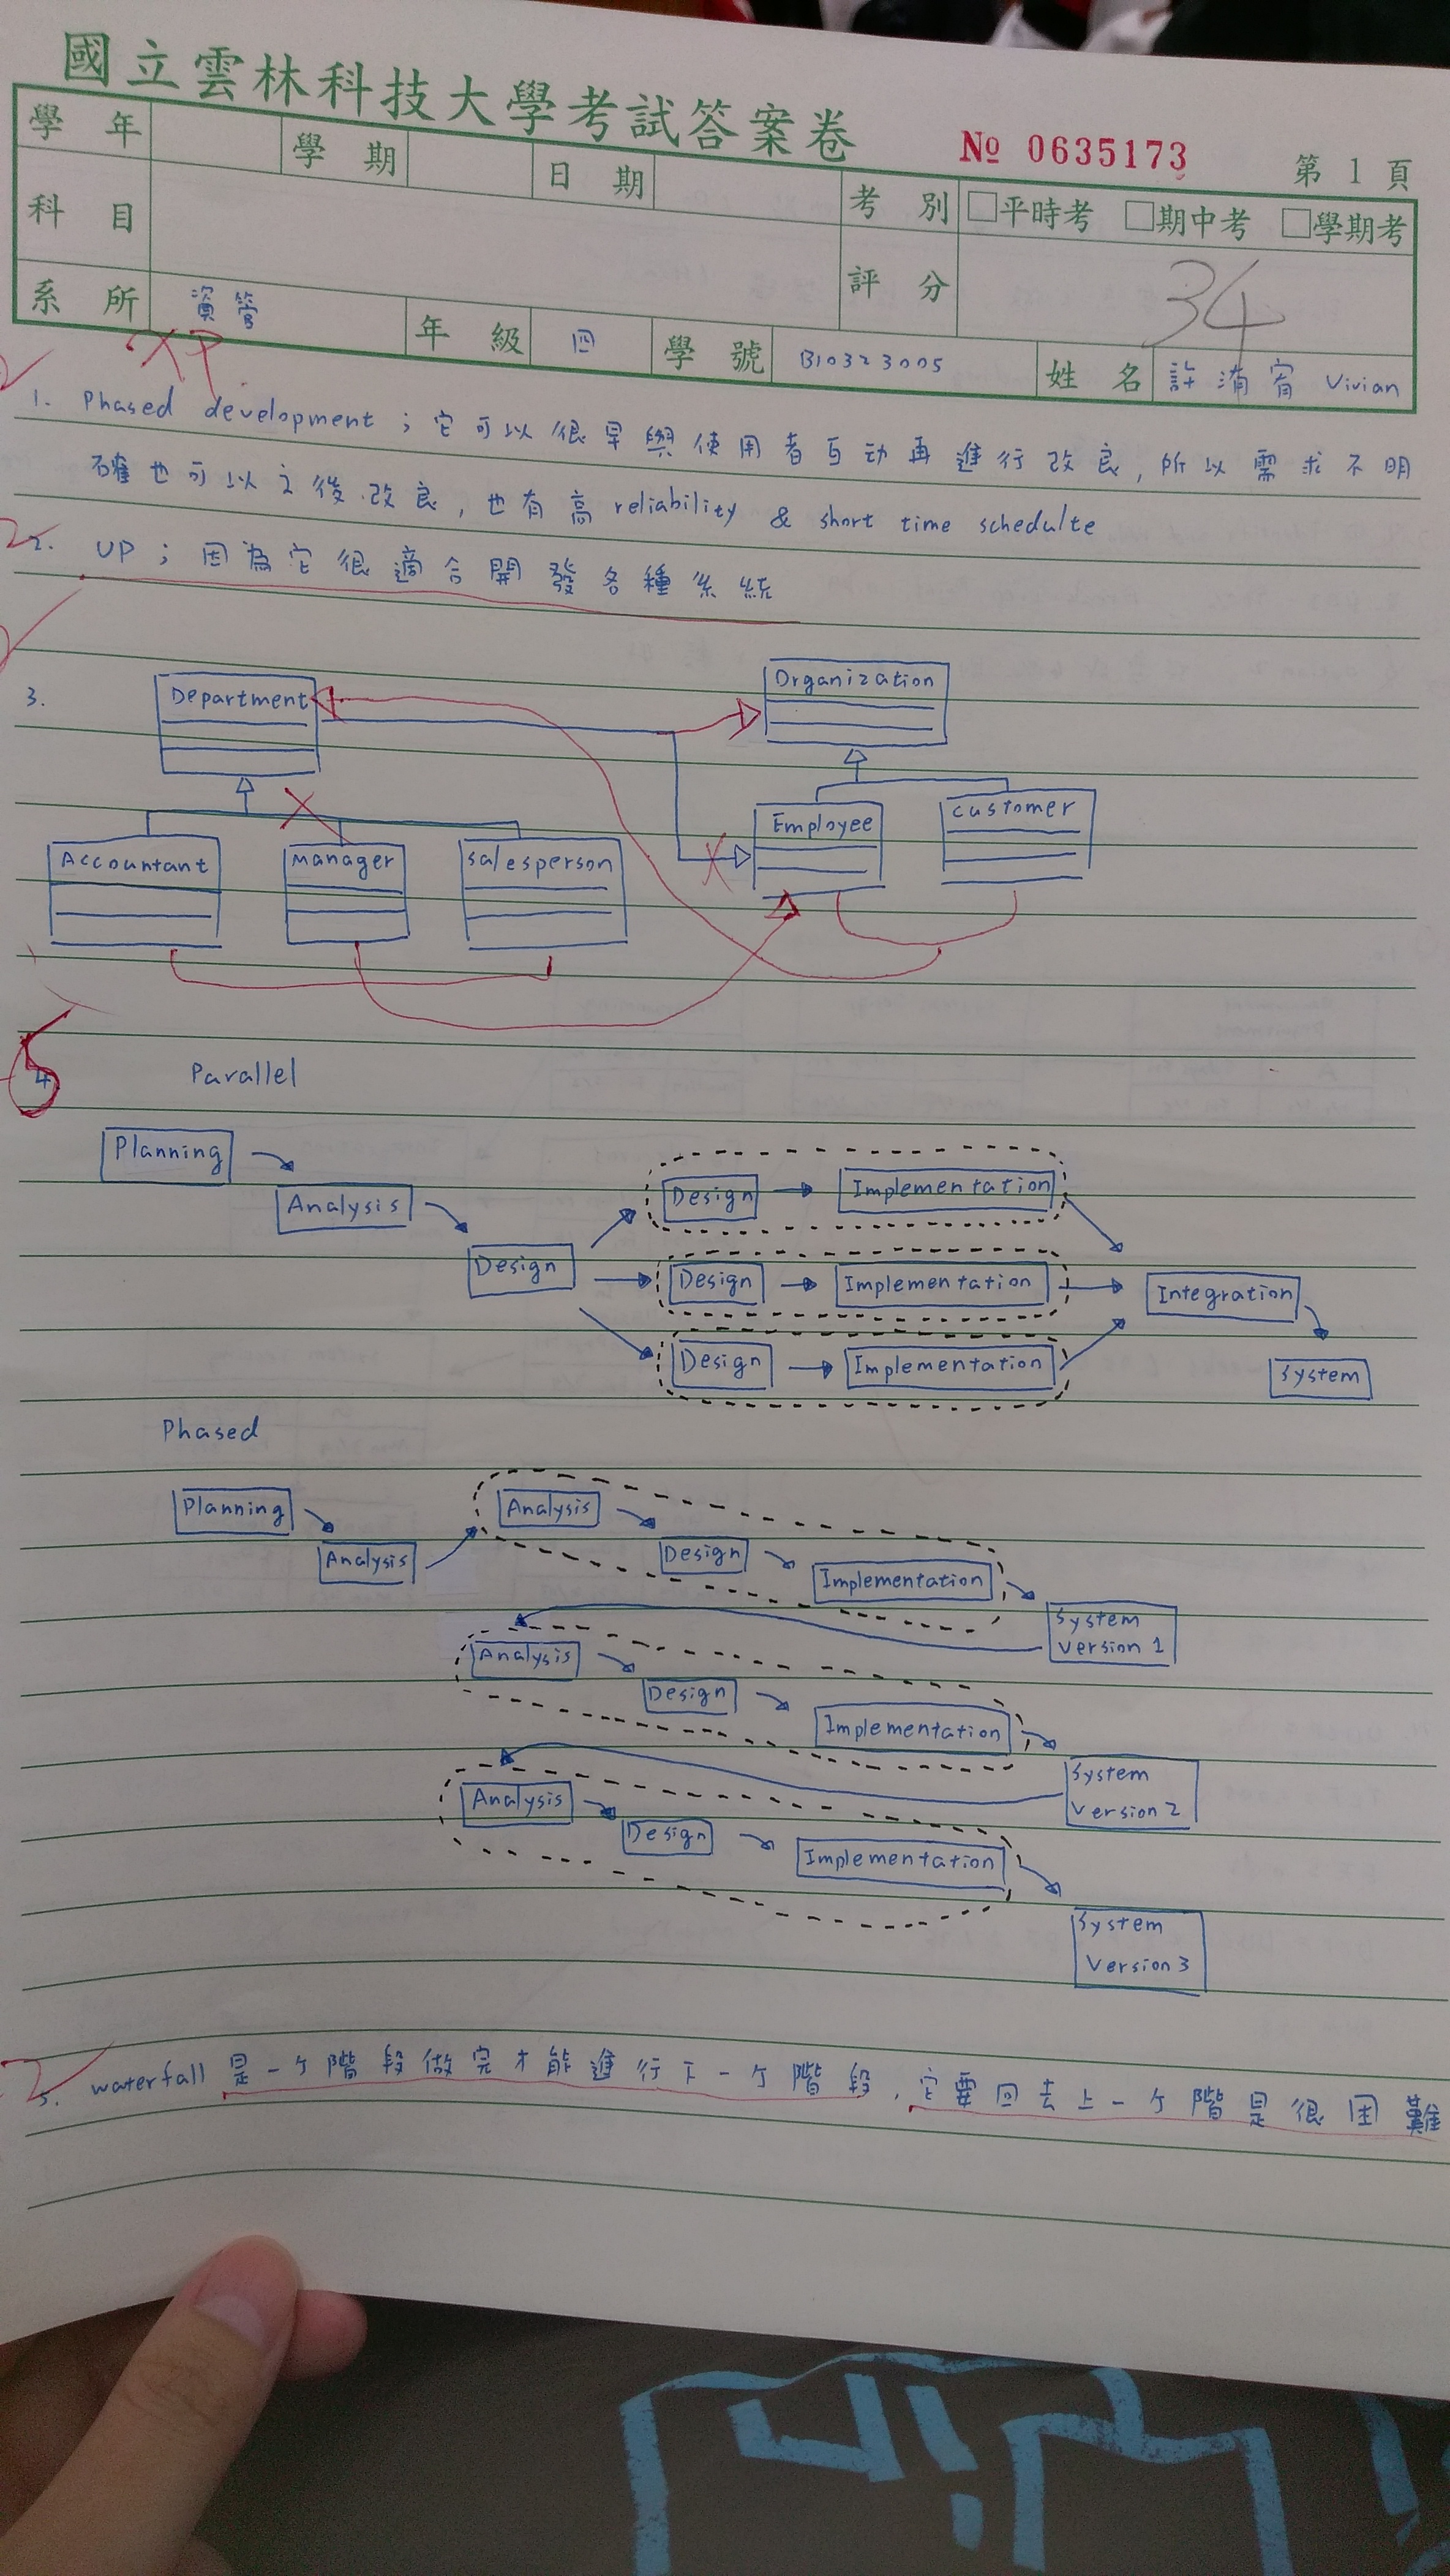 國立雲林科技大學考試答案卷
№ 0635173
第 1 頁
學 年
學 期
日 期
考 別
□平時考 □期中考 □學期考
科 目
評 分
34
系 所
資管
年 級
四
學 號
B10323005
姓 名
許 宥 Vivian
XP
1. Phased development ; 它可以很早與使用者互动再進行改良, 所以需求不明
確也可以之後改良, 也有高 reliability & short time schedulte
2. UP ; 因為它很適合開發各種系統
3.
Department
Organization
Accountant
manager
salesperson
Employee
customer
5
4.
Parallel
Planning
Analysis
Design
Design
Implementation
Design
Implementation
Design
Implementation
Integration
System
Phased
Planning
Analysis
Analysis
Design
Implementation
System
version 1
Analysis
Design
Implementation
System
version 2
Analysis
Design
Implementation
System
Version 3
5. waterfall 是一ケ階段做完才能進行下一ケ階段, 它要回去上一ケ階是很困難